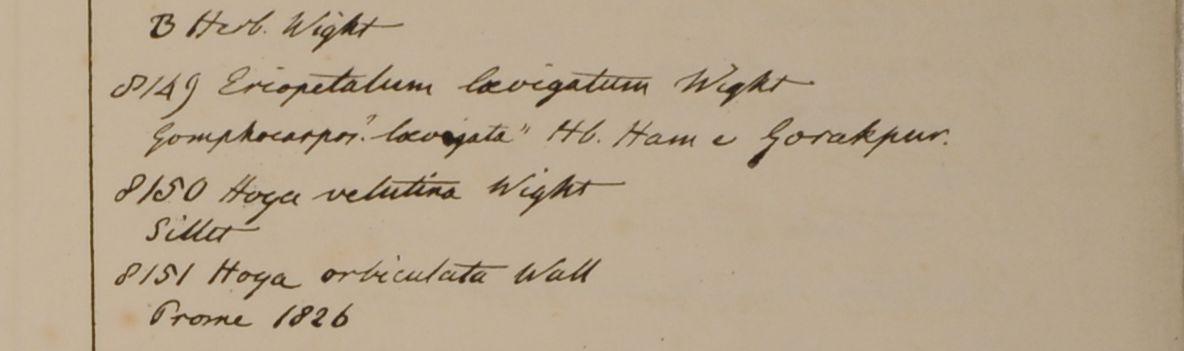 B Herb. Wight
8149 Eriopetalum lævigatum Wight
Gomphocarpos? "lævigata" Hb. Ham e Gorakpur.
8150 Hoya velutina Wight
Sillet
8151 Hoya orbiculata Wall
Prome 1826